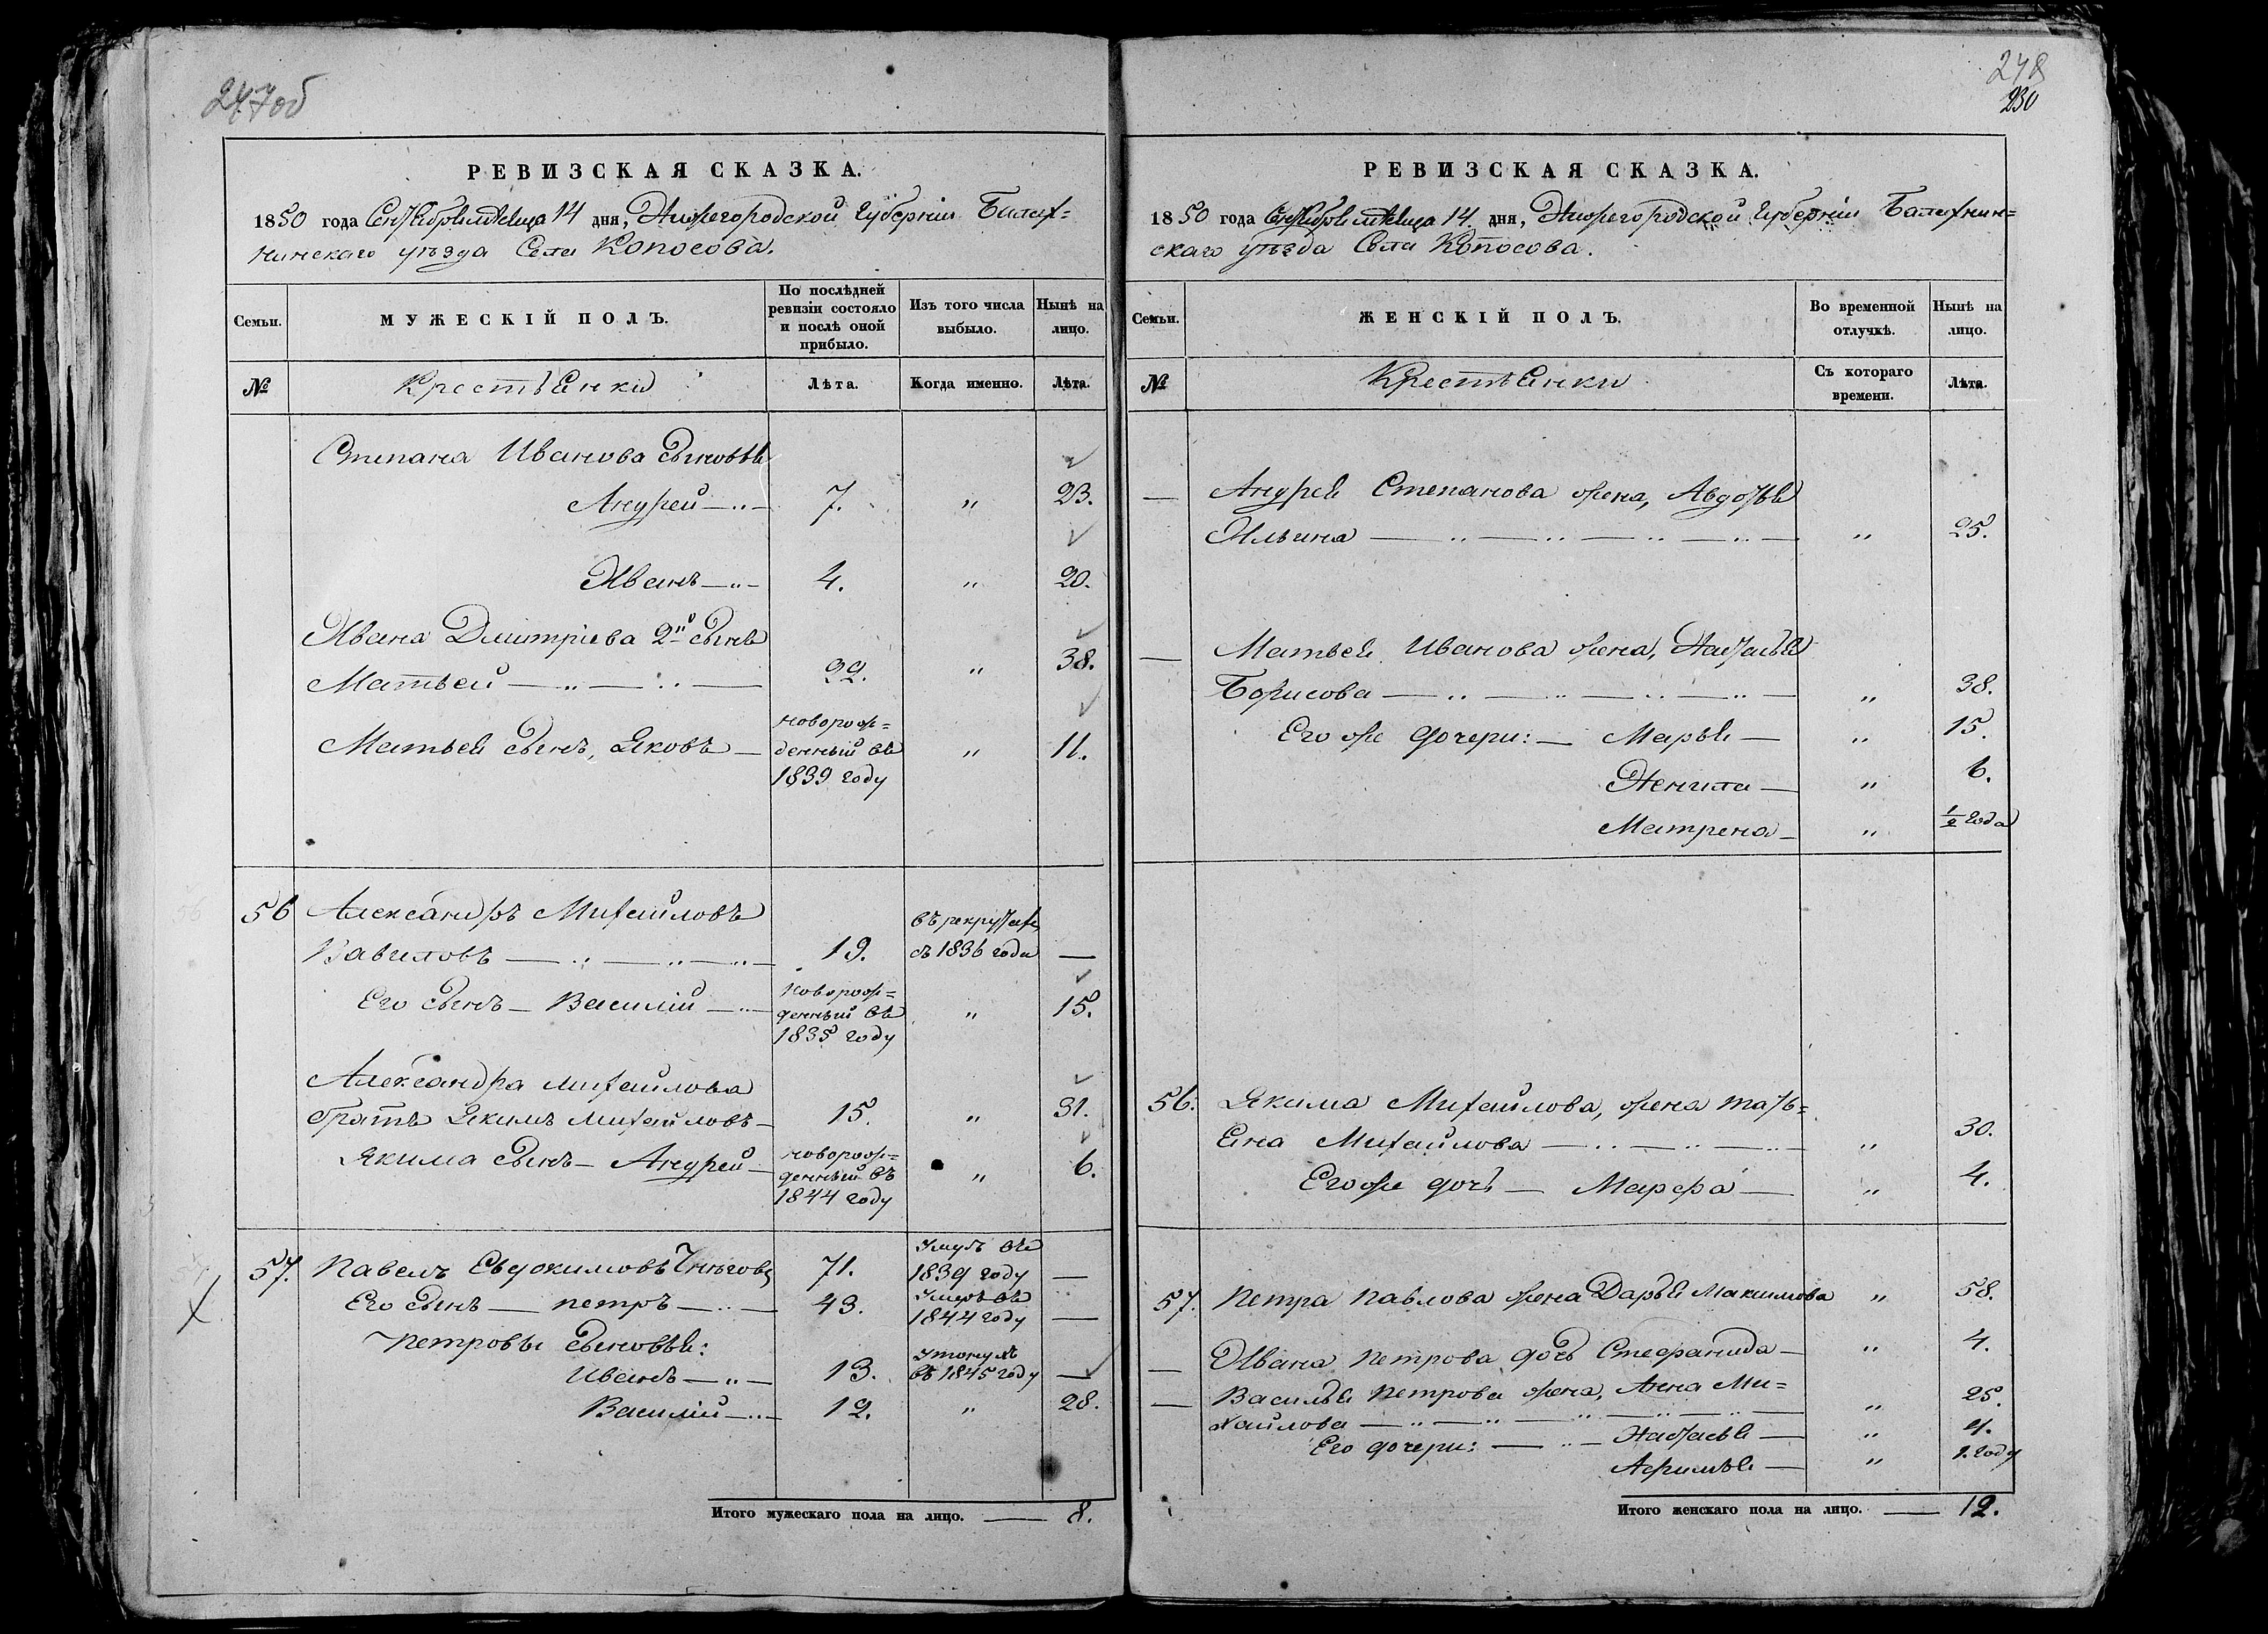 247об
РЕВИЗСКАЯ СКАЗКА.
1850 года Сентября месяца 14 дня, Нижегородской Губерніи Балах=
нинскаго уѣзда Села Копосова.
Семьи.
МУЖЕСКІЙ ПОЛЪ.
По послѣдней ревизіи состояло и послѣ оной прибыло.
Изъ того числа выбыло.
Нынѣ на лицо.
№
Крестьянки
Лѣта.
Когда именно.
Лѣта.
Степана Иванова сыновья
Андрей — 7. " 23.
Иванъ — 4. " 20.
Ивана Дмитріева 2й сынъ
Матвей — 22. " 38.
новорож=
Матвея сынъ, Яковъ — денный въ " 11.
1839 году
56 Александръ Михайловъ
въ рекрутахъ
Вавиловъ — 19. съ 1836 года —
новорож=
Его сынъ — Василій — денный въ " 15.
1835 году
Александра Михайлова
братъ Якимъ Михайловъ — 15. " 31.
новорож=
Якима сынъ — Андрей — денный въ " 6.
1844 году
57. Павелъ Евдокимовъ 71. 1839 году —
Его сынъ — Петръ — 43. Умеръ въ
1844 году —
Петровы сыновья:
Утонулъ
Иванъ — " — 13. въ 1845 году —
Василій — 12. " 28.
Итого мужескаго пола на лицо. — 8.
248
230
РЕВИЗСКАЯ СКАЗКА.
1850 года Сентября месяца 14 дня, Нижегородской Губерніи Балахнин=
скаго уѣзда Села Копосова.
Семьи.
ЖЕНСКІЙ ПОЛЪ.
Во временной отлучкѣ.
Нынѣ на лицо.
№
Крестьянки
Съ котораго времени.
Лѣта.
— Андрея Степанова жена, Авдотья
Ильина — " 25.
— Матвея Иванова жена, Наталья
Борисова — " 38.
Его же дочери: — Марья — " 15.
Ненила — " 6.
Матрена — " 1/2 года
56. Якима Михайлова, жена Тать=
яна Михайлова — " 30.
Его же дочь — Марфа — " 4.
57. Петра Павлова жена Дарья Максимова " 58.
— Ивана Петрова дочь Стефанида — " 4.
— Василья Петрова жена, Анна Ми=
хайлова — " 25.
Его дочери: — Наталья — " 4.
Афимья — " 1. году
Итого женскаго пола на лицо. — 12.